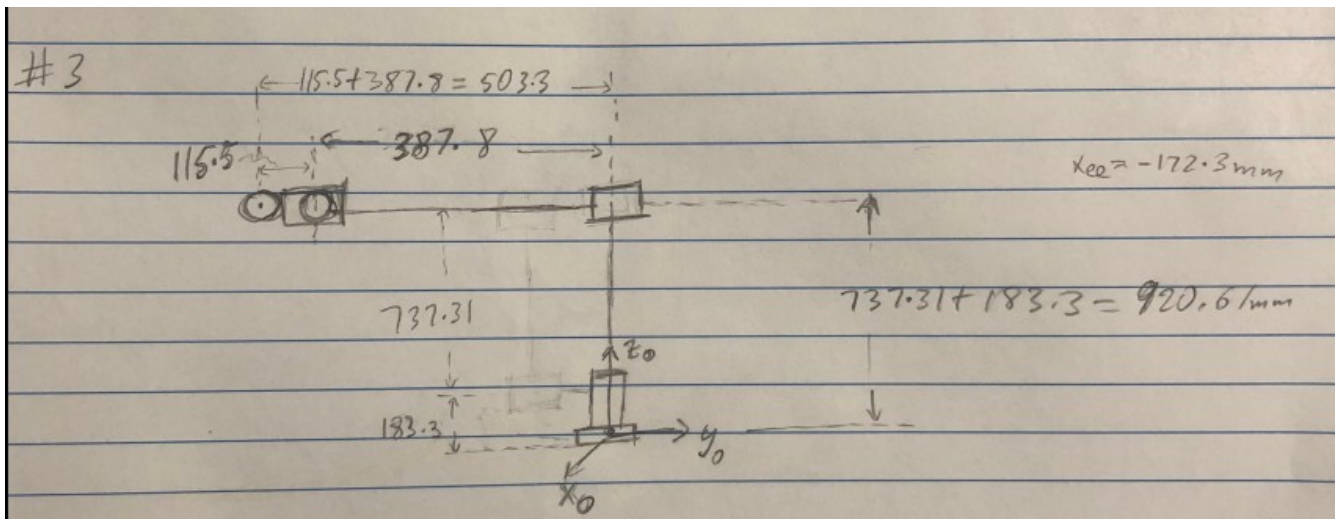 #3
115.5+387.8 = 503.3
387.8
115.5
xee = -172.3mm
737.31
737.31+183.3 = 920.61mm
z0
183.3
y0
x0